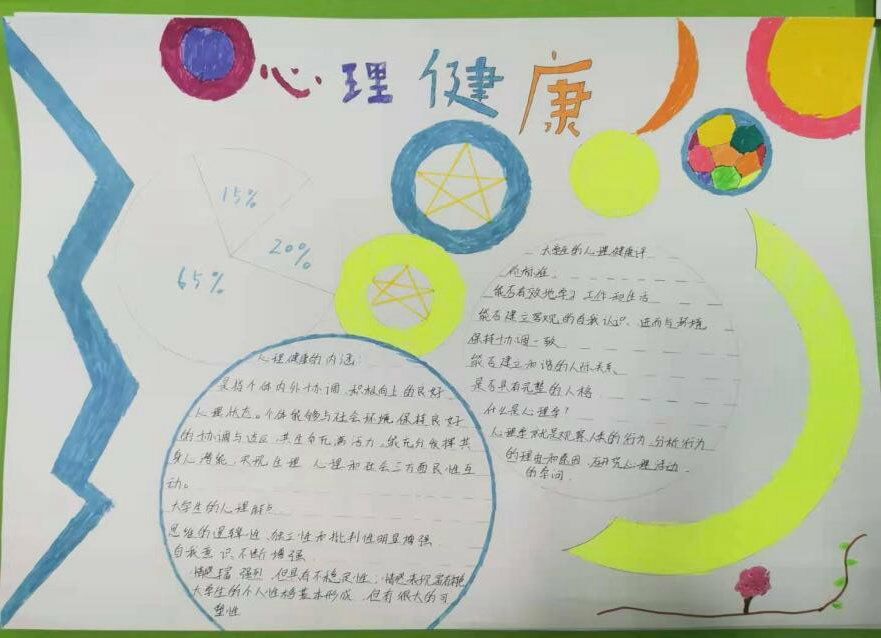 心理健康
15%
20%
65%
大学生的心理健康评
价标准
能否有效地学习 工作和生活
能否建立客观的自我认识、进而与环境
保持协调一致
能否建立和谐的人际关系
是否具有完整的人格
什么是心理学？
心理学就是观察人类的行为,分析行为
的理由和原因,研究心理活动
的学问
心理健康的内涵:
是指个体内外协调,积极向上的良好
心理状态。个体能够与社会环境保持良好
的协调与适应,其生命充满活力。能充分发挥其
身心潜能,实现生理 心理和社会三方面良性互
动。
大学生的心理特点
思维的逻辑性、独立性和批判性明显增强
自我意识不断增强
情感 强烈,但具有不稳定性;情感表现
大学生的个人性格基本形成,但有很大的可
塑性